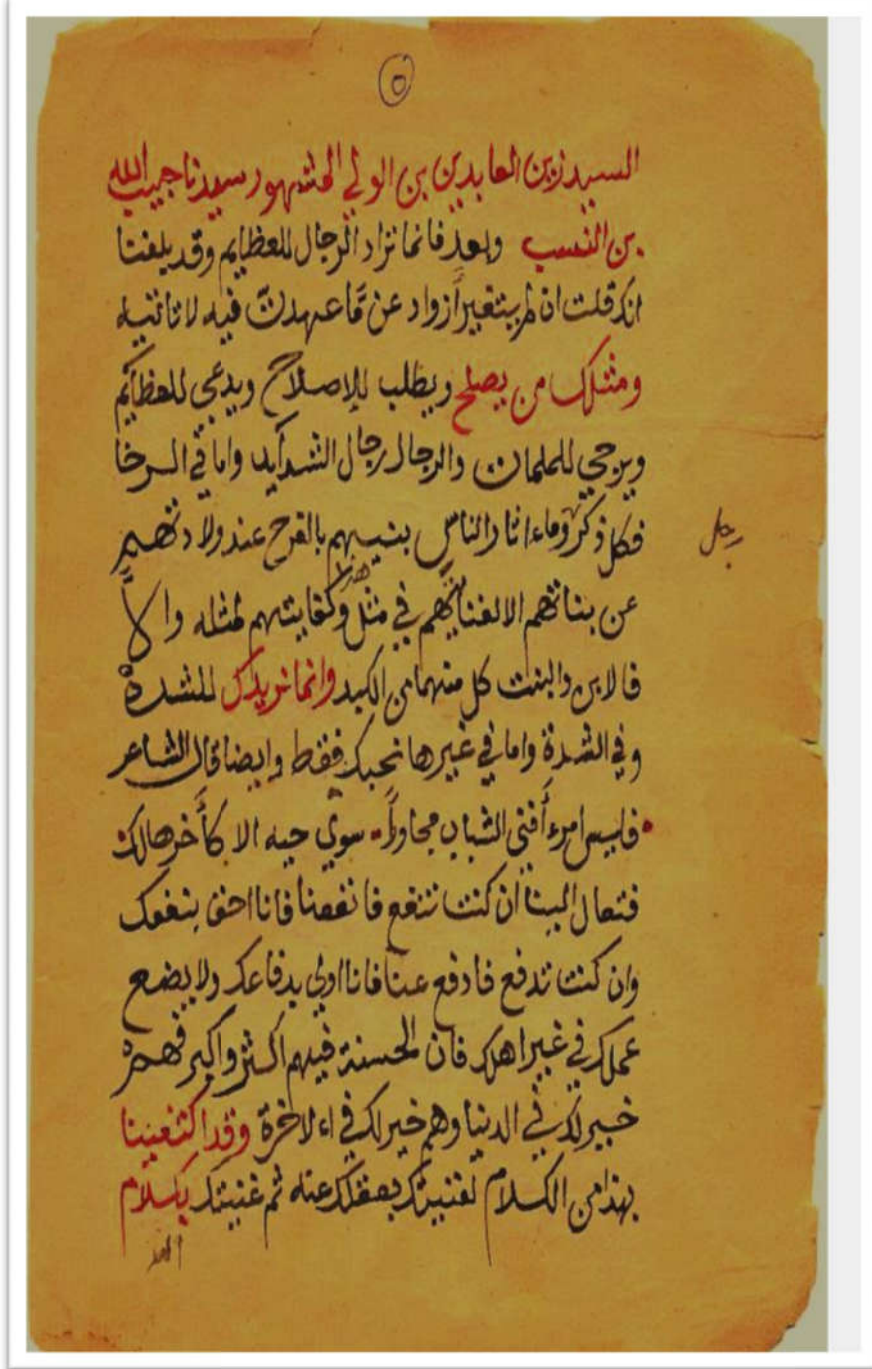 ٥
السيد زين العابدين بن الولي المشهور سيدنا حبيب الله
بن النسب وبعد فانما تراد الرجال للعظايم وقد بلغنا
انك قلت ان لم يتغير أزواد عن مّا عهدتّ فيه لا تاتيه
ومثلك من يصلح ويطلب للإصلاح ويدعي للعظائم
ويرجي للملمات والرجال رجال الشدآيد واما في الرخا
فكل ذكر وماء اثار الناس بنيهم بالفرح عند ولادتهم
رجل
عن بناتهم الا لغنايهم في مثل هذا وكفايتهم لمثله والاّ
فالابن والبنت كل منهما من الكبد وانما نريدك للشدة
وفي الشدة واما في غيرها نحبك فقط وايضا قال الشاعر
فليس امرء أفني الشباب مجاوراً سوي حيه الا كأخر هالك
فتعال الينا ان كنت تنفع فانفعنا فانا احق بنفعك
وان كنت تدفع فادفع عنا فانا اولي بدفاعك ولا يضع
عملك في غير اهلك فان الحسنة فيهم اكثر واكبر فهم
خير لك في الدنيا وهم خير لك في اءلاخرة وقد اكتفينا
بهذا من الكلام لغنيتك بعقلك عنه ثم غنيتك بكلام